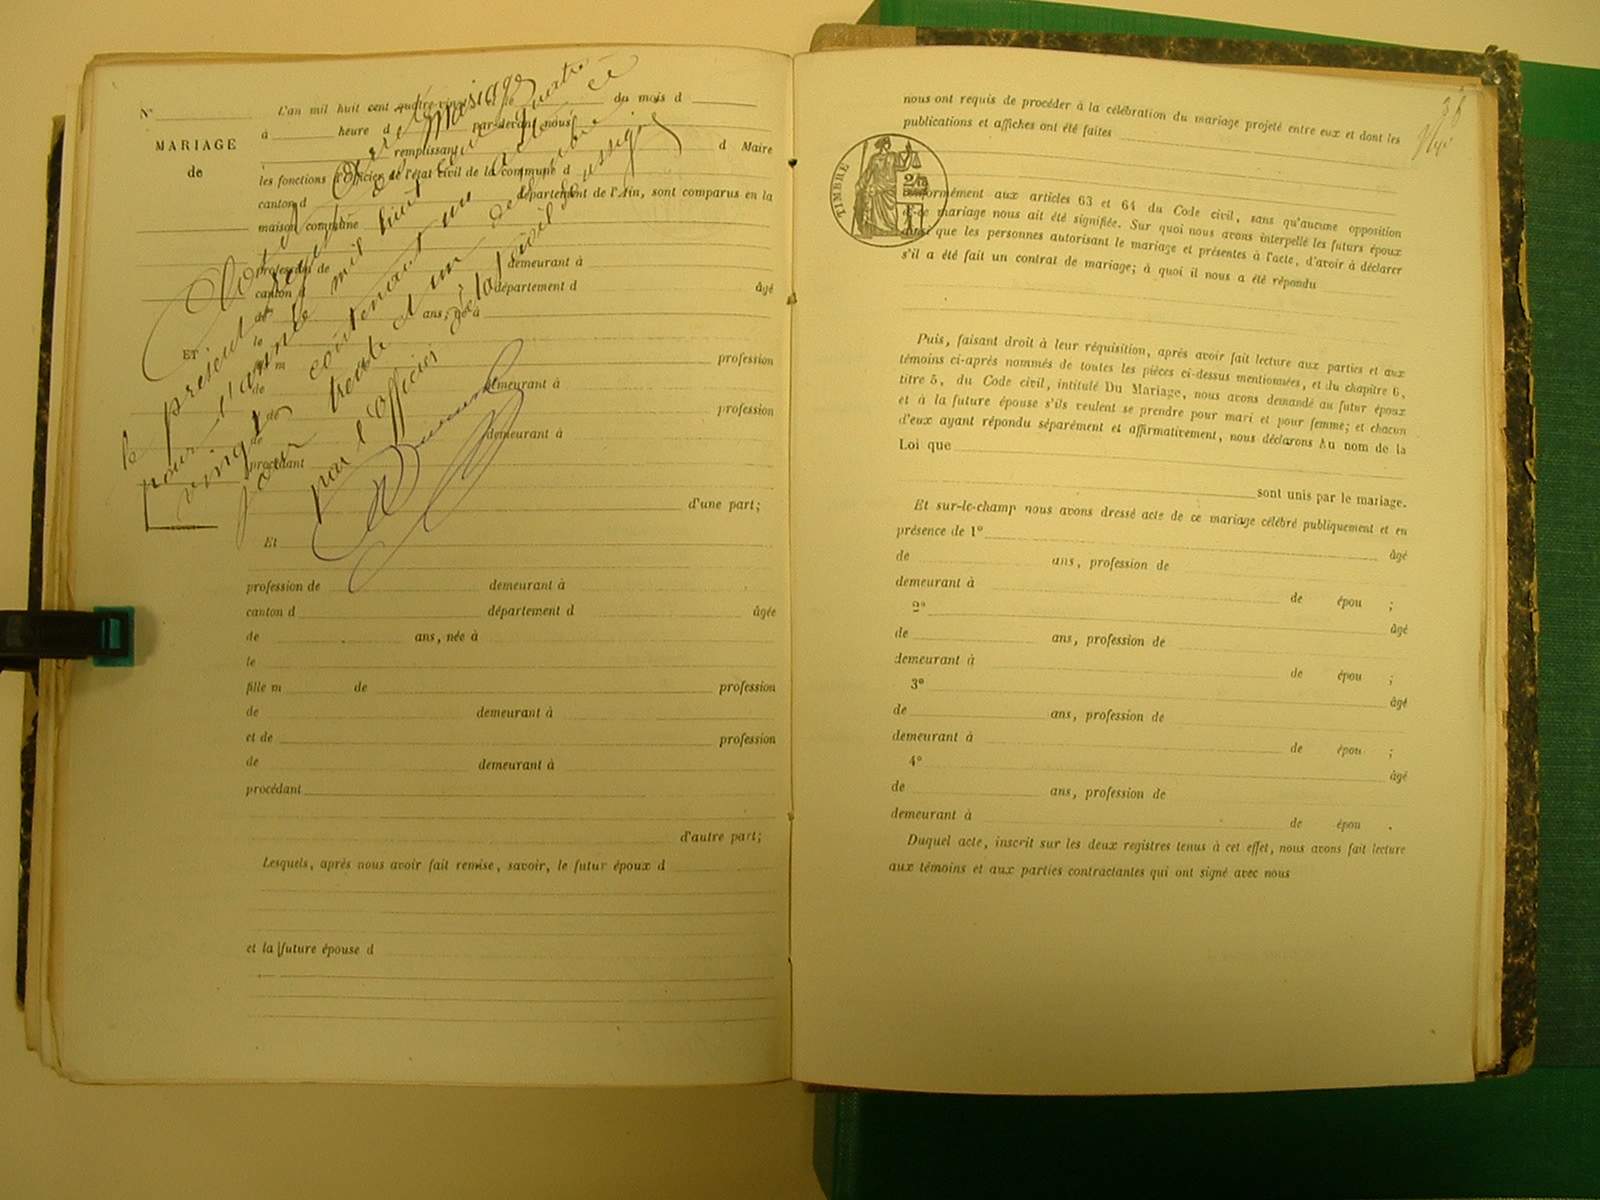 N°
MARIAGE
de
ET
L'an mil huit cent quatre-vingt et le du mois d
à heure d par-devant nous
remplissant d Maire
les fonctions d'Officier de l'état civil de la commune d
canton d département de l'Ain, sont comparus en la
maison commune
profession de demeurant à
canton d département d âgé
de ans, né à
le
m
de profession
de demeurant à
et de profession
de demeurant à
procédant
d'une part;
Et
profession de demeurant à
canton d département d âgée
de ans, née à
le
fille m de profession
de demeurant à
et de profession
de demeurant à
procédant
d'autre part;
Lesquels, après nous avoir fait remise, savoir, le futur époux d
et la future épouse d
Clos et arrêté
le présent registre de Mariage
pour l'année mil huit cent quatre
vingt contenant un acte ce
jour trente et un décembre
par l'Officier de l'état civil soussigné
nous ont requis de procéder à la célébration du mariage projeté entre eux et dont les
publications et affiches ont été faites
TIMBRE
conformément aux articles 63 et 64 du Code civil, sans qu'aucune opposition
à ce mariage nous ait été signifiée. Sur quoi nous avons interpellé les futurs époux
ainsi que les personnes autorisant le mariage et présentes à l'acte, d'avoir à déclarer
s'il a été fait un contrat de mariage; à quoi il nous a été répondu
Puis, faisant droit à leur réquisition, après avoir fait lecture aux parties et aux
témoins ci-après nommés de toutes les pièces ci-dessus mentionnées, et du chapitre 6,
titre 5, du Code civil, intitulé Du Mariage, nous avons demandé au futur époux
et à la future épouse s'ils veulent se prendre pour mari et pour femme; et chacun
d'eux ayant répondu séparément et affirmativement, nous déclarons Au nom de la
Loi que
sont unis par le mariage.
Et sur-le-champ nous avons dressé acte de ce mariage célébré publiquement et en
présence de 1° âgé
de ans, profession de
demeurant à de épou ;
2° âgé
de ans, profession de
demeurant à de épou ;
3° âgé
de ans, profession de
demeurant à de épou ;
4° âgé
de ans, profession de
demeurant à de épou .
Duquel acte, inscrit sur les deux registres tenus à cet effet, nous avons fait lecture
aux témoins et aux parties contractantes qui ont signé avec nous